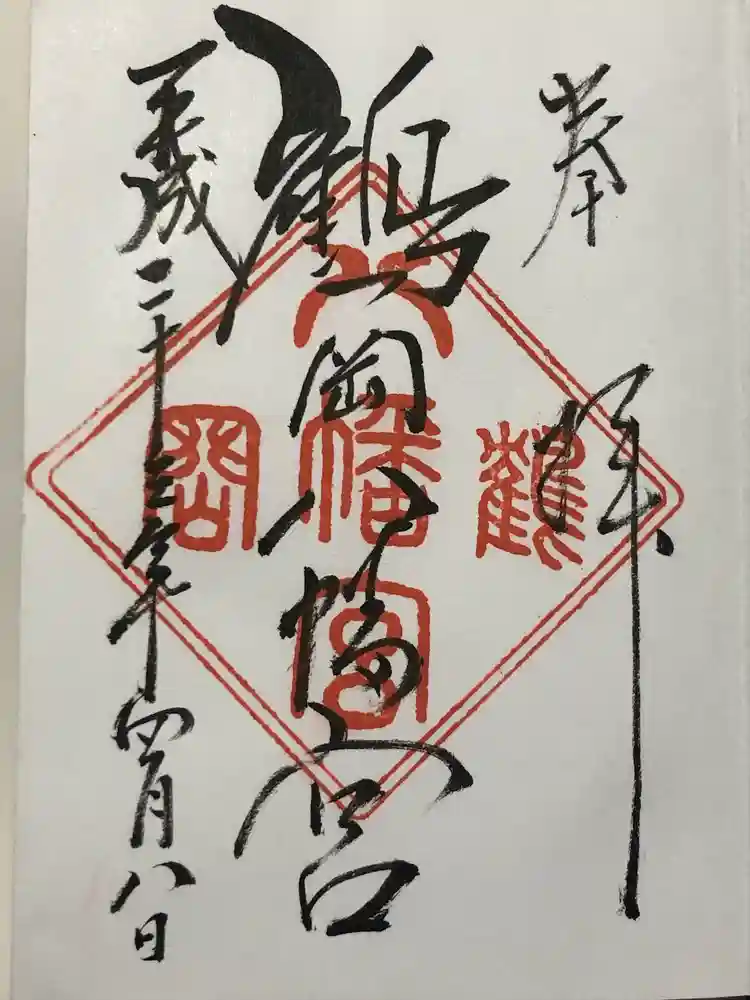 奉拝
鶴岡八幡宮
平成二十三年四月八日
鶴岡八幡宮